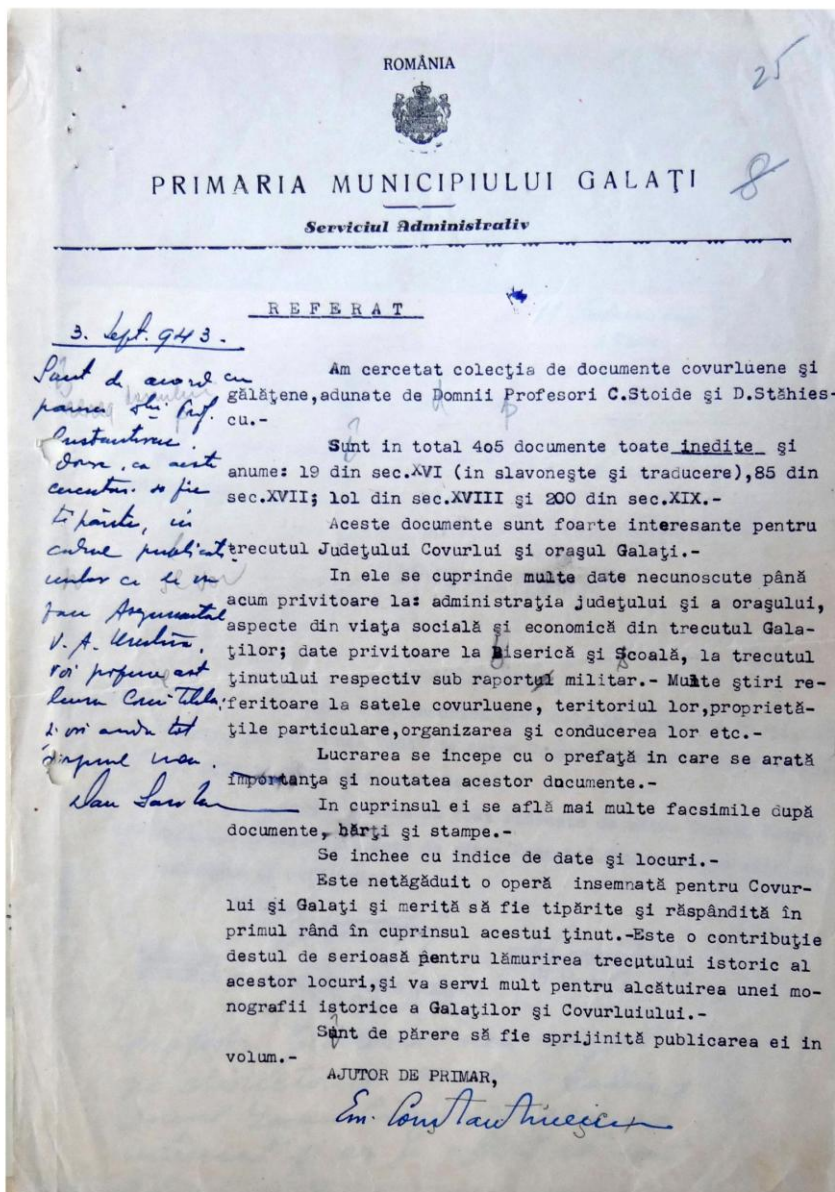 ROMÂNIA
25
8
PRIMARIA MUNICIPIULUI GALAŢI
Serviciul Administrativ
REFERAT
3. Sept. 943.
Sunt de acord cu
părerea Prof.
Constantinescu.
ca
cercetări să fie
tipărite, in
cadrul
ce se
V. A. Urechia.
voi
tot
Am cercetat colecţia de documente covurluene şi
gălăţene,adunate de Domnii Profesori C.Stoide şi D.Stăhies-
cu.-
Sunt in total 4o5 documente toate inedite şi
anume: 19 din sec.XVI (in slavoneşte şi traducere),85 din
sec.XVII; lol din sec.XVIII şi 200 din sec.XIX.-
Aceste documente sunt foarte interesante pentru
trecutul Judeţului Covurlui şi oraşul Galaţi.-
In ele se cuprinde multe date necunoscute până
acum privitoare la: administraţia judeţului şi a oraşului,
aspecte din viaţa socială şi economică din trecutul Gala-
ţilor; date privitoare la Biserică şi Şcoală, la trecutul
ţinutului respectiv sub raportul militar.- Multe ştiri re-
feritoare la satele covurluene, teritoriul lor,proprietă-
ţile particulare,organizarea şi conducerea lor etc.-
Lucrarea se incepe cu o prefaţă in care se arată
importanţa şi noutatea acestor documente.-
In cuprinsul ei se află mai multe facsimile după
documente, hărţi şi stampe.-
Se inchee cu indice de date şi locuri.-
Este netăgăduit o operă insemnată pentru Covur-
lui şi Galaţi şi merită să fie tipărite şi răspândită în
primul rând în cuprinsul acestui ţinut.-Este o contribuţie
destul de serioasă pentru lămurirea trecutului istoric al
acestor locuri,şi va servi mult pentru alcătuirea unei mo-
nografii istorice a Galaţilor şi Covurluiului.-
Sunt de părere să fie sprijinită publicarea ei in
volum.-
AJUTOR DE PRIMAR,
Em. Constantinescu